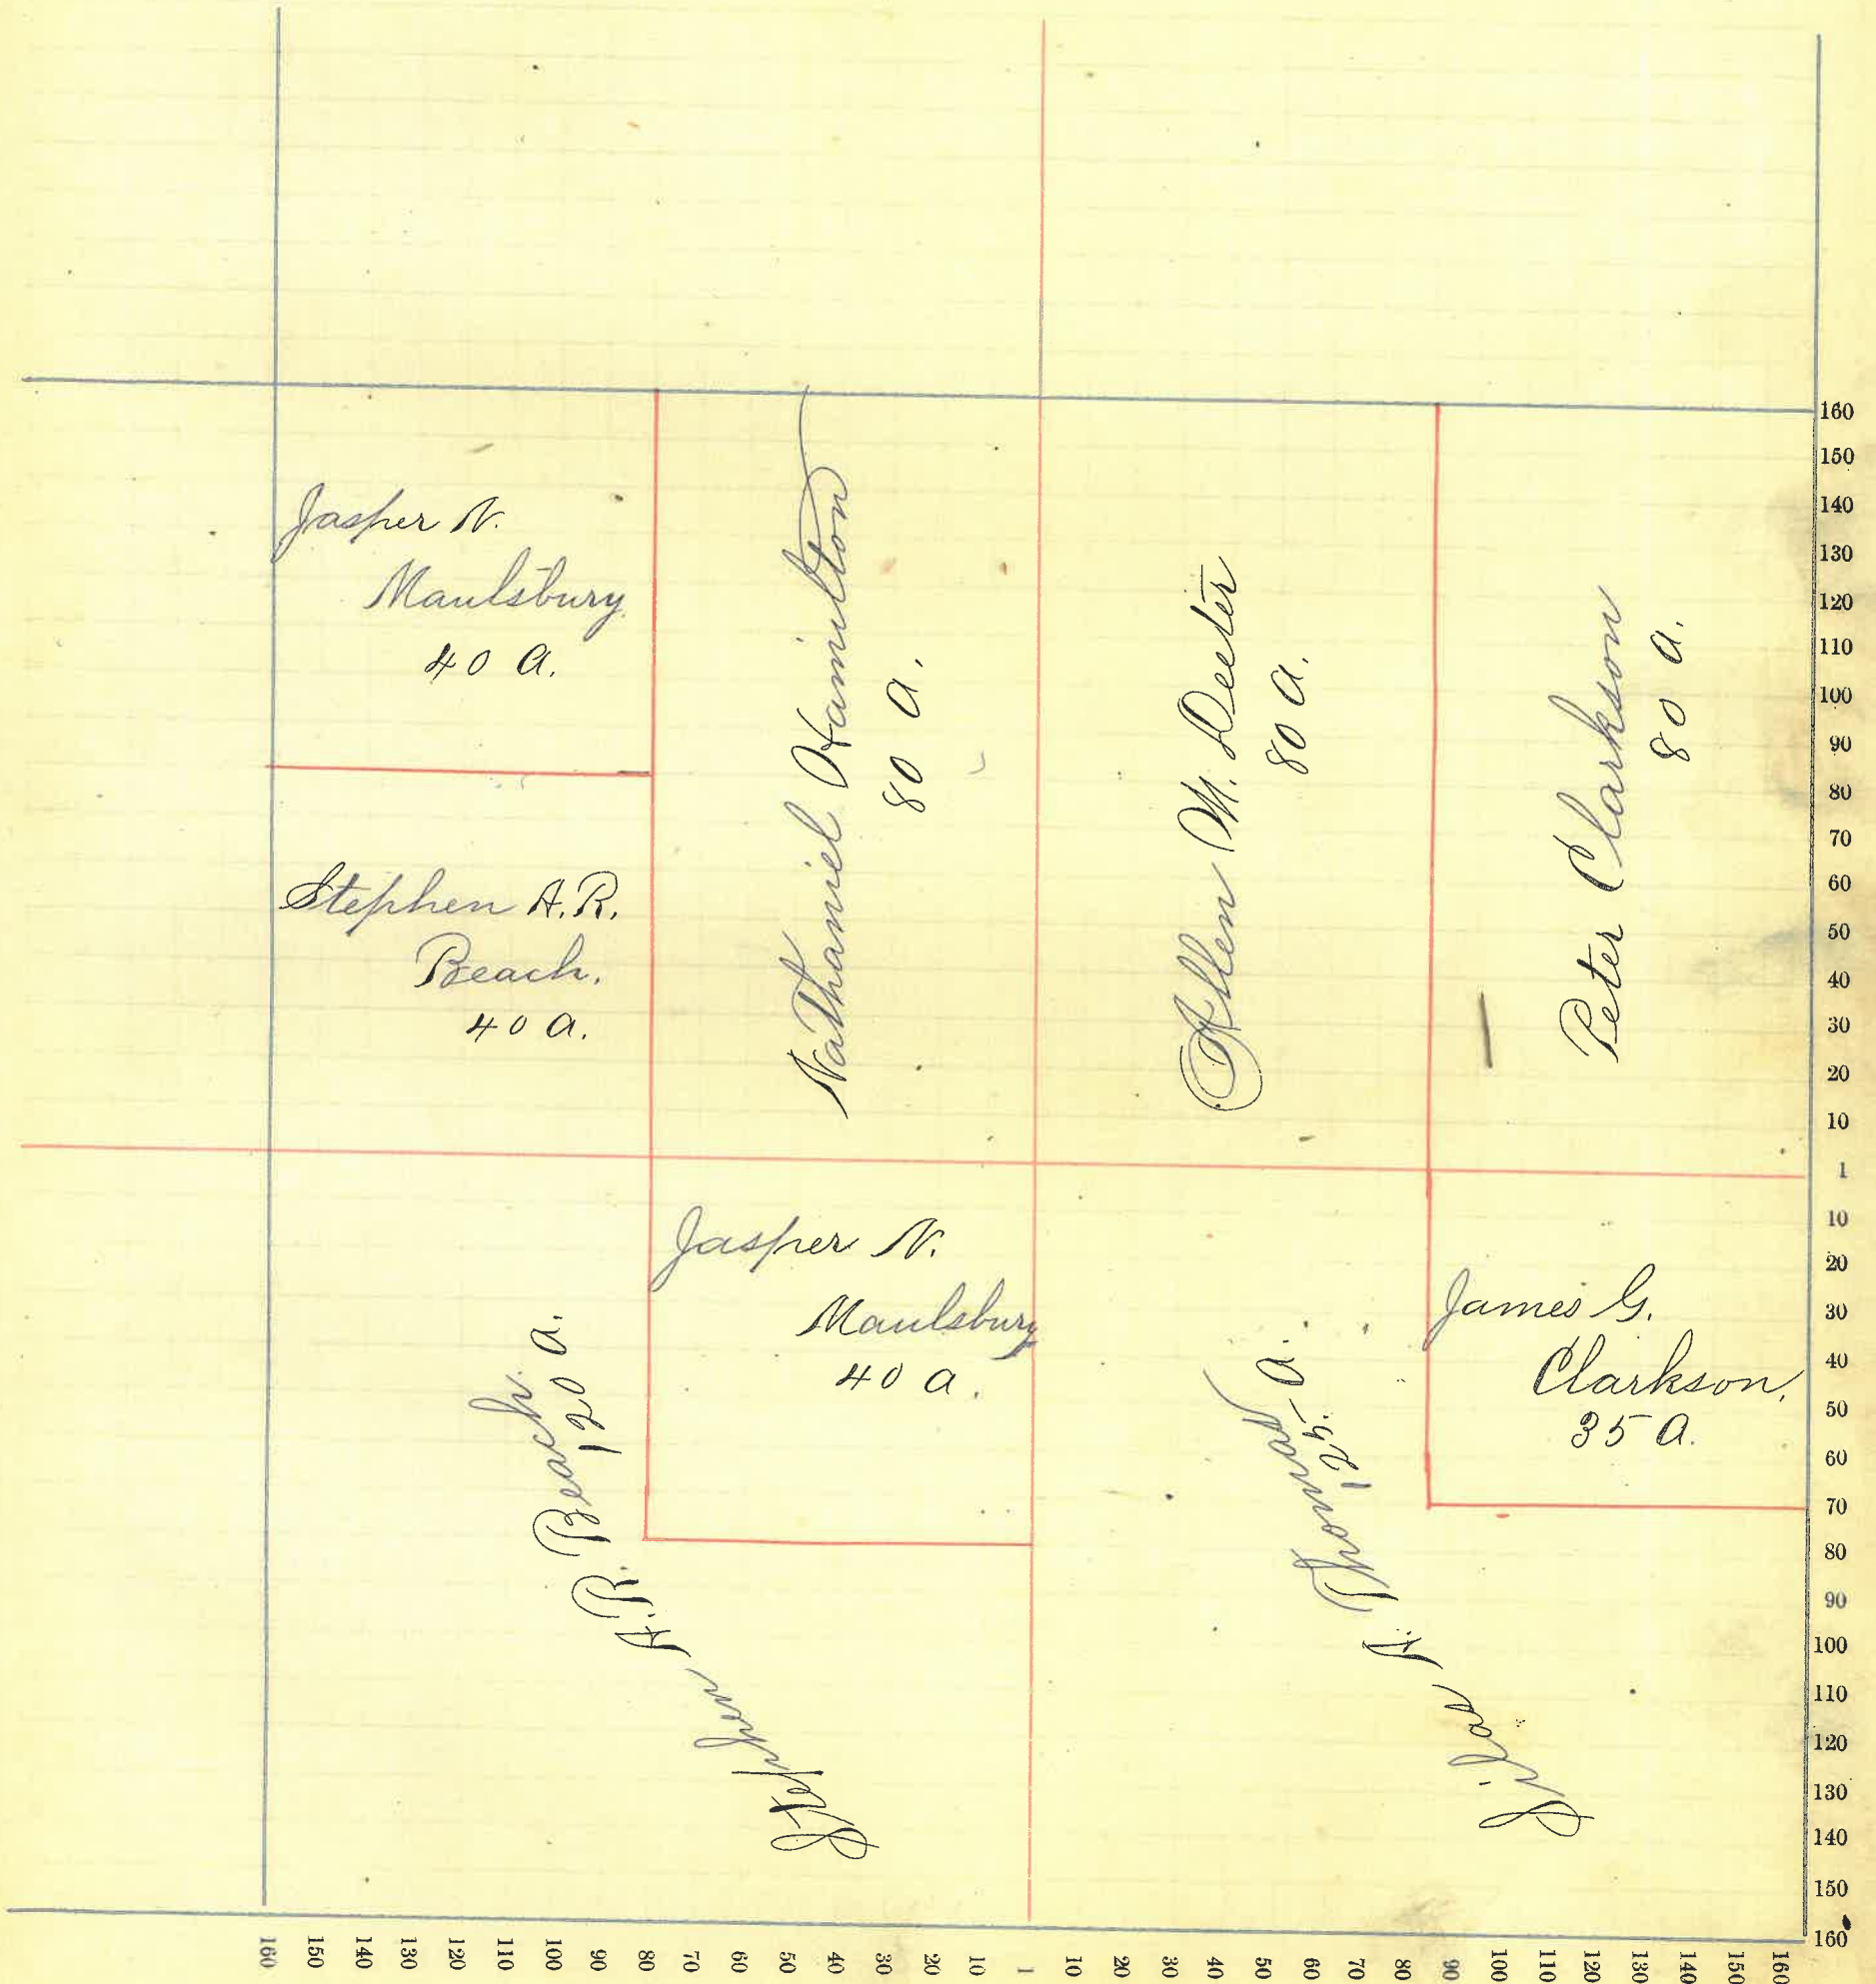 Jasper N.
Maulsbury.
40 A.
Stephen A. R.
Beach.
40 A.
Nathaniel Hamilton
80 A.
Allen M. Deeter
80 A.
Peter Clarkson
80 A.
Stephen A. R. Beach.
120 A.
Jasper N.
Maulsbury
40 A.
Silas A. Thomas
125 A.
James G.
Clarkson.
35 A.
160
150
140
130
120
110
100
90
80
70
60
50
40
30
20
10
1
10
20
30
40
50
60
70
80
90
100
110
120
130
140
150
160
160 150 140 130 120 110 100 90 80 70 60 50 40 30 20 10 1 10 20 30 40 50 60 70 80 90 100 110 120 130 140 150 160